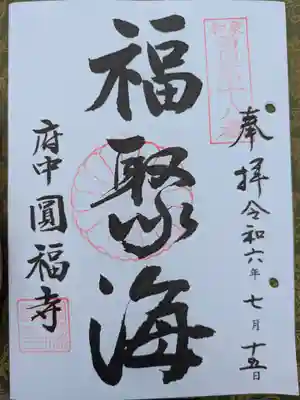 奉拝 令和六年 七月 十五日
福聚海
府中 圓福寺